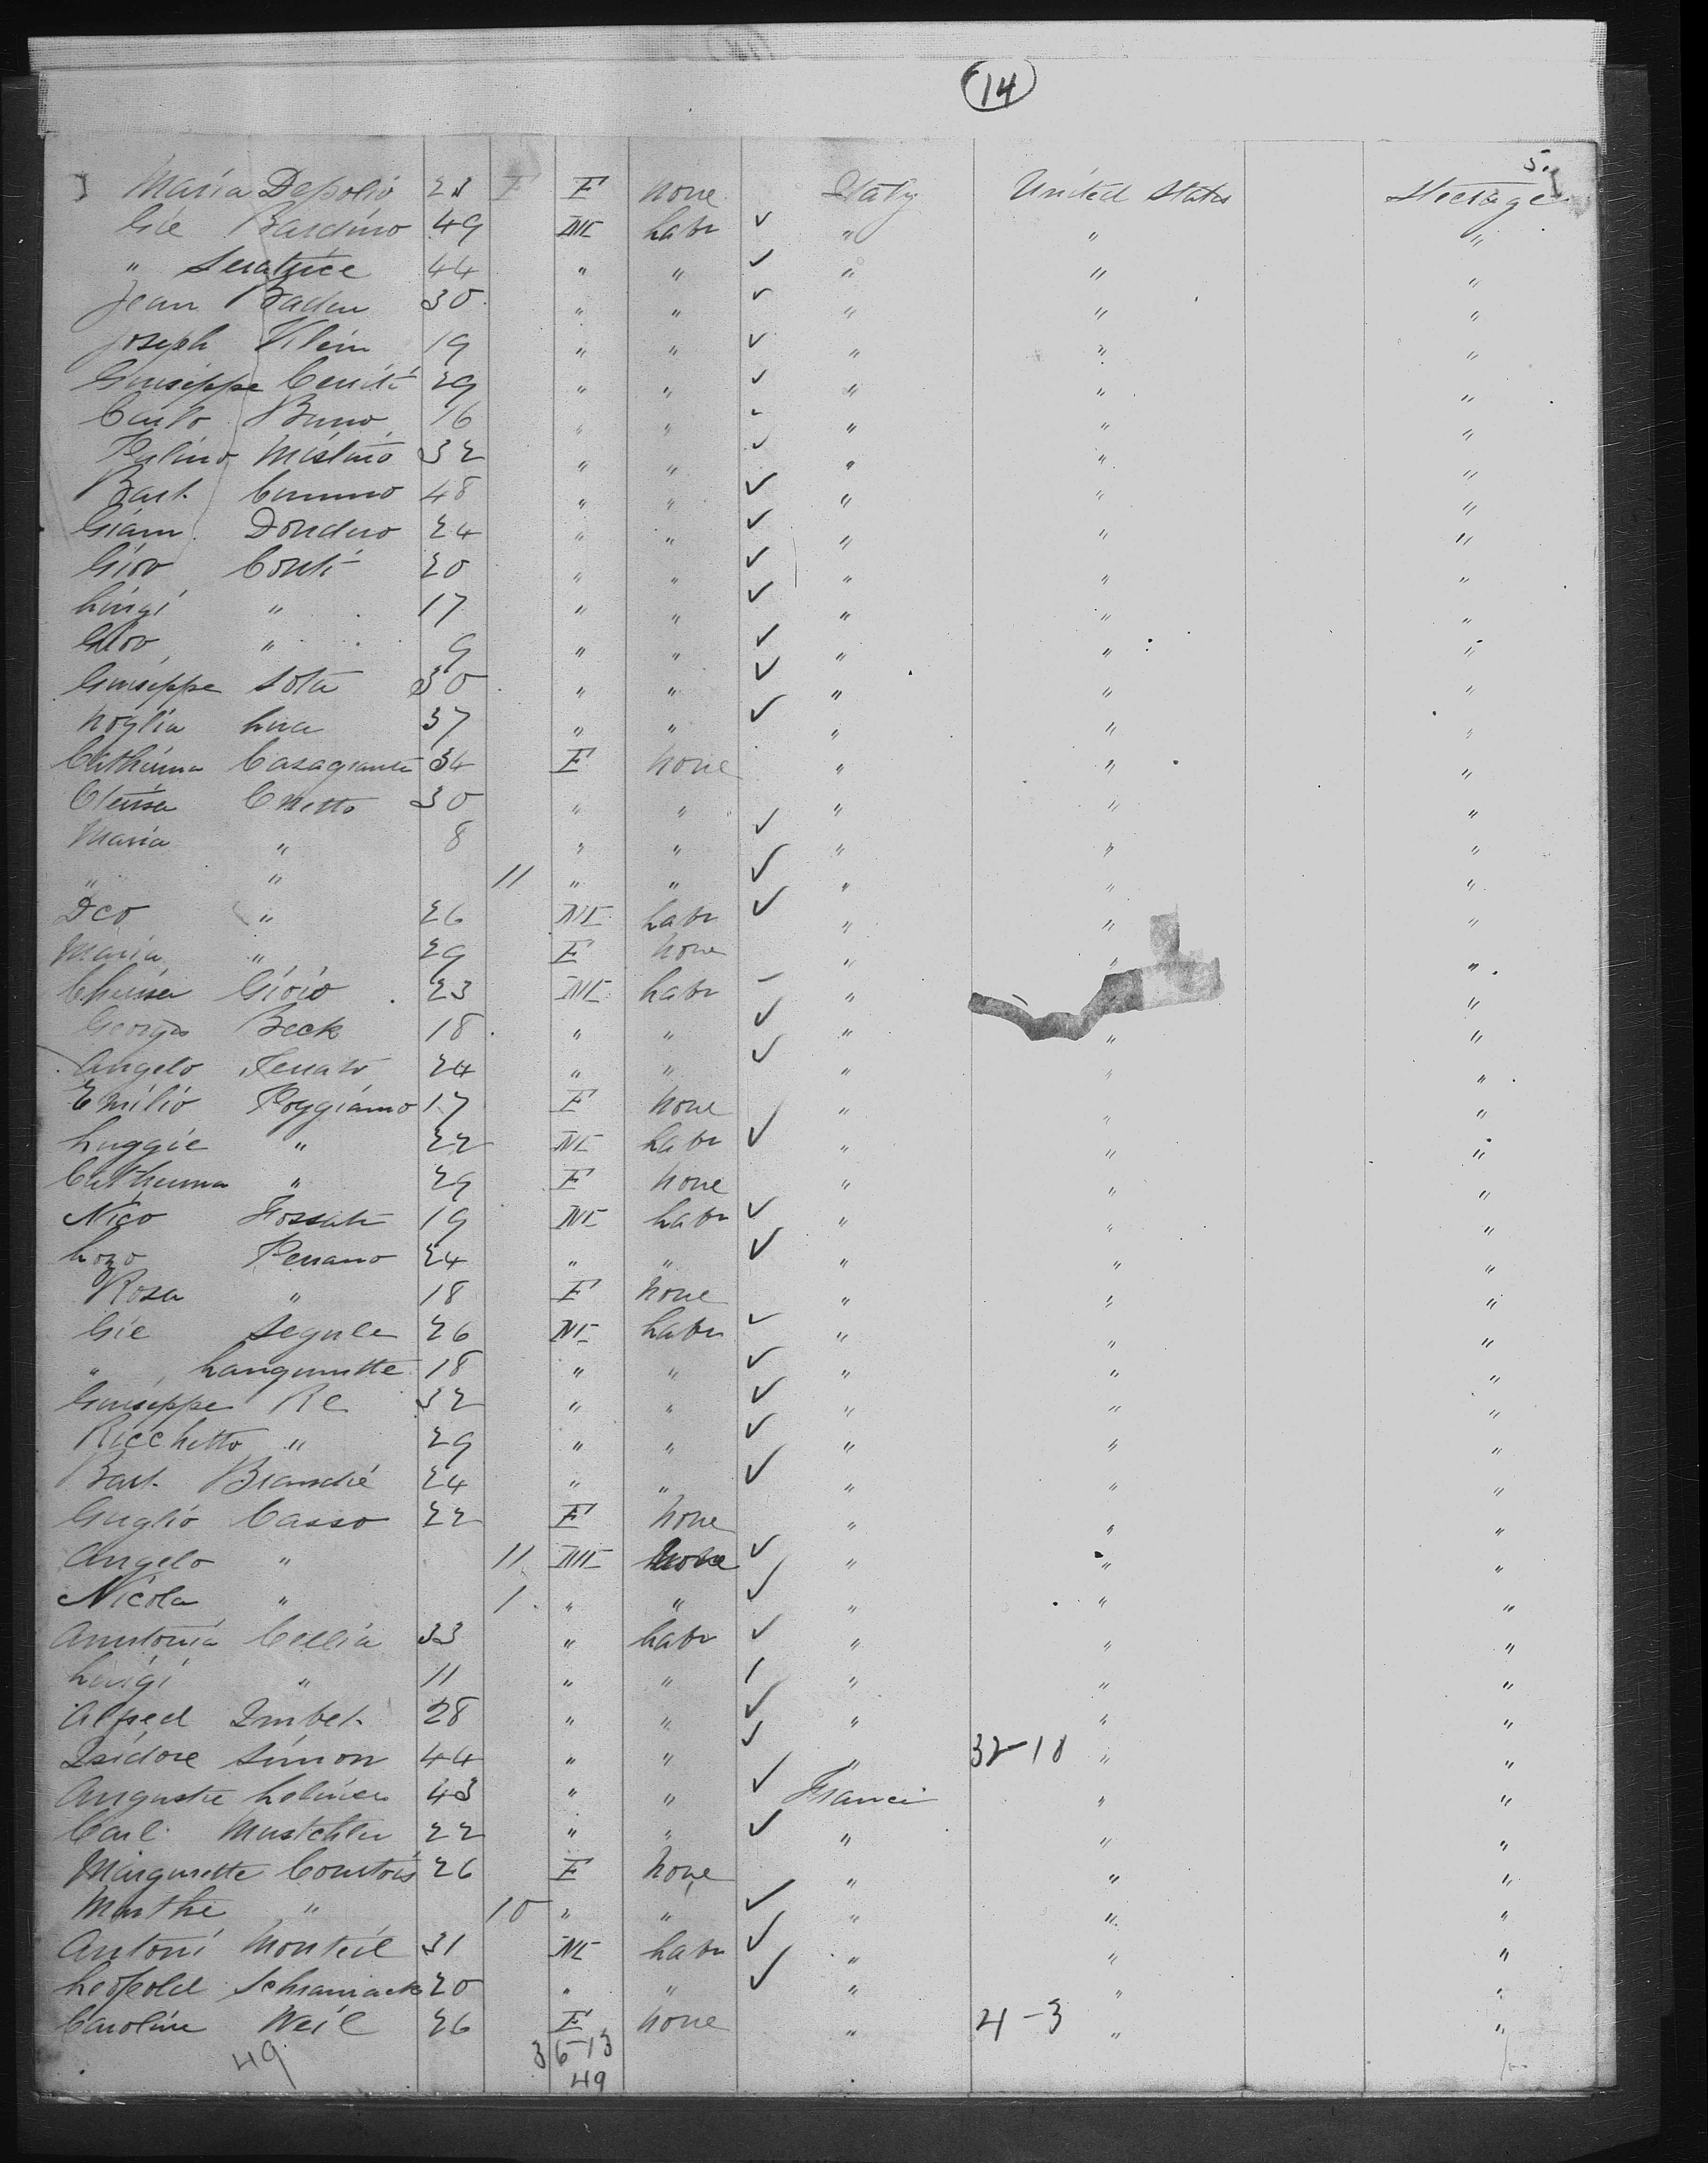 14
5
Maria Depolio 23 F none Italy United States Steerage
Gie Bardino 49 M labr ✓ " " "
" Seratrice 44 " " ✓ " " "
Jean Badin 30 " " ✓ " " "
Joseph Klein 19 " " ✓ " " "
Guiseppe Ceruti 29 " " ✓ " " "
Carlo Bruno 16 " " ✓ " " "
Mistino 32 " " ✓ " " "
Bart. 48 " " ✓ " " "
Giam. Dondero 24 " " ✓ " " "
Giov Conti 20 " " ✓ " " "
Luigi " 17 " " ✓ " " "
Giov " 9 " " ✓ " " "
Guiseppe Sota 30 " " ✓ " " "
Noglia 37 " " ✓ " " "
Catherina Casagrante 34 F none " " "
Cnetto 30 " " " " "
Maria " 8 " " ✓ " " "
" " 11 " " ✓ " " "
Dco " 26 M labr ✓ " " "
Maria " 29 F none " " "
Gioio 23 M labr " " "
Georges Beck 18 " " ✓ " " "
Angelo Ferrato 24 " " ✓ " " "
Emilio Poggiamo 17 F none " " "
Luggie " 22 M labr ✓ " " "
Catherina " 29 F none " " "
Nico Fossati 19 M labr ✓ " " "
Lozo Perrano 24 " " ✓ " " "
Rosa " 18 F none " " "
Gie Segule 26 M labr ✓ " " "
" Languinette 18 " " ✓ " " "
Guiseppe Re 32 " " ✓ " " "
Ricchetto " 29 " " ✓ " " "
Bart. Biandié 24 " " ✓ " " "
Guglio Casso 22 F none " " "
Angelo " 11 M none ✓ " " "
Nicola " 1 " " ✓ " " "
Anntonia Cellia 33 " labr ✓ " " "
Luigi " 11 " " ✓ " " "
Alfred Imbet 28 " " ✓ " " "
Isidore Simon 44 " " ✓ " 32-10 " "
Auguste 43 " " ✓ France " "
Carl Mustchler 22 " " ✓ " " "
Marguerette Courtois 26 F none " " "
Marthe " 10 " " ✓ " " "
Antoni Monteil 31 M labr ✓ " " "
Leopold Schramack 20 " " ✓ " " "
Caroline Weil 26 F none " 4-3 " "
49 36-13
49